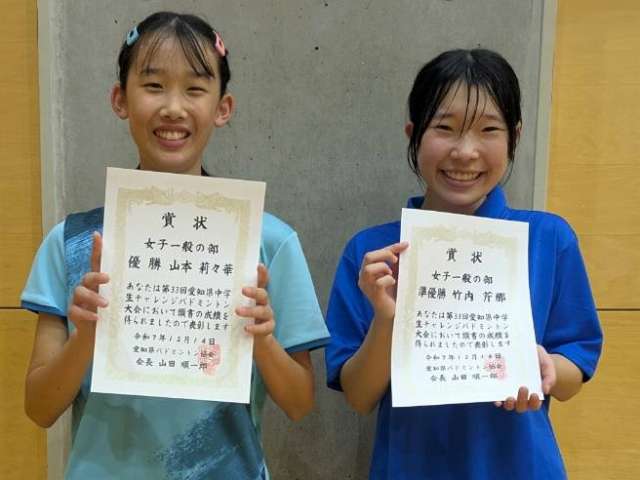 賞状
女子一般の部
優勝 山本 莉々華
あなたは第33回愛知県中学
生チャレンジバドミントン
大会において頭書の成績を
得られましたので表彰します
令和7年12月14日
愛知県バドミントン協会
会長 山田 順一郎
賞状
女子一般の部
準優勝 竹内 芹娜
あなたは第33回愛知県中学
生チャレンジバドミントン
大会において頭書の成績を
得られましたので表彰します
令和7年12月14日
愛知県バドミントン協会
会長 山田 順一郎